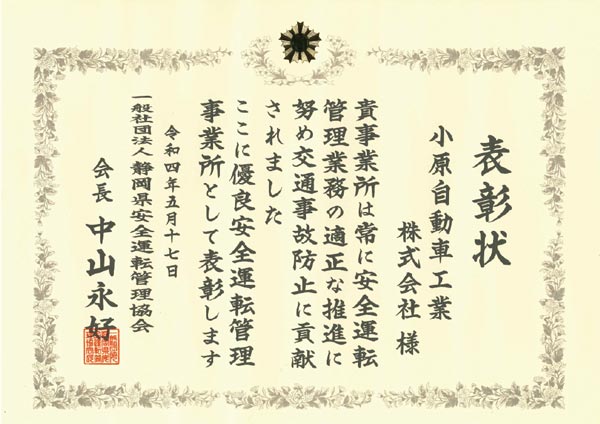 表彰状
小原自動車工業
株式会社 様
貴事業所は常に安全運転
管理業務の適正な推進に
努め交通事故防止に貢献
されました
ここに優良安全運転管理
事業所として表彰します
令和四年五月十七日
一般社団法人 静岡県安全運転管理協会
会長 中山永好